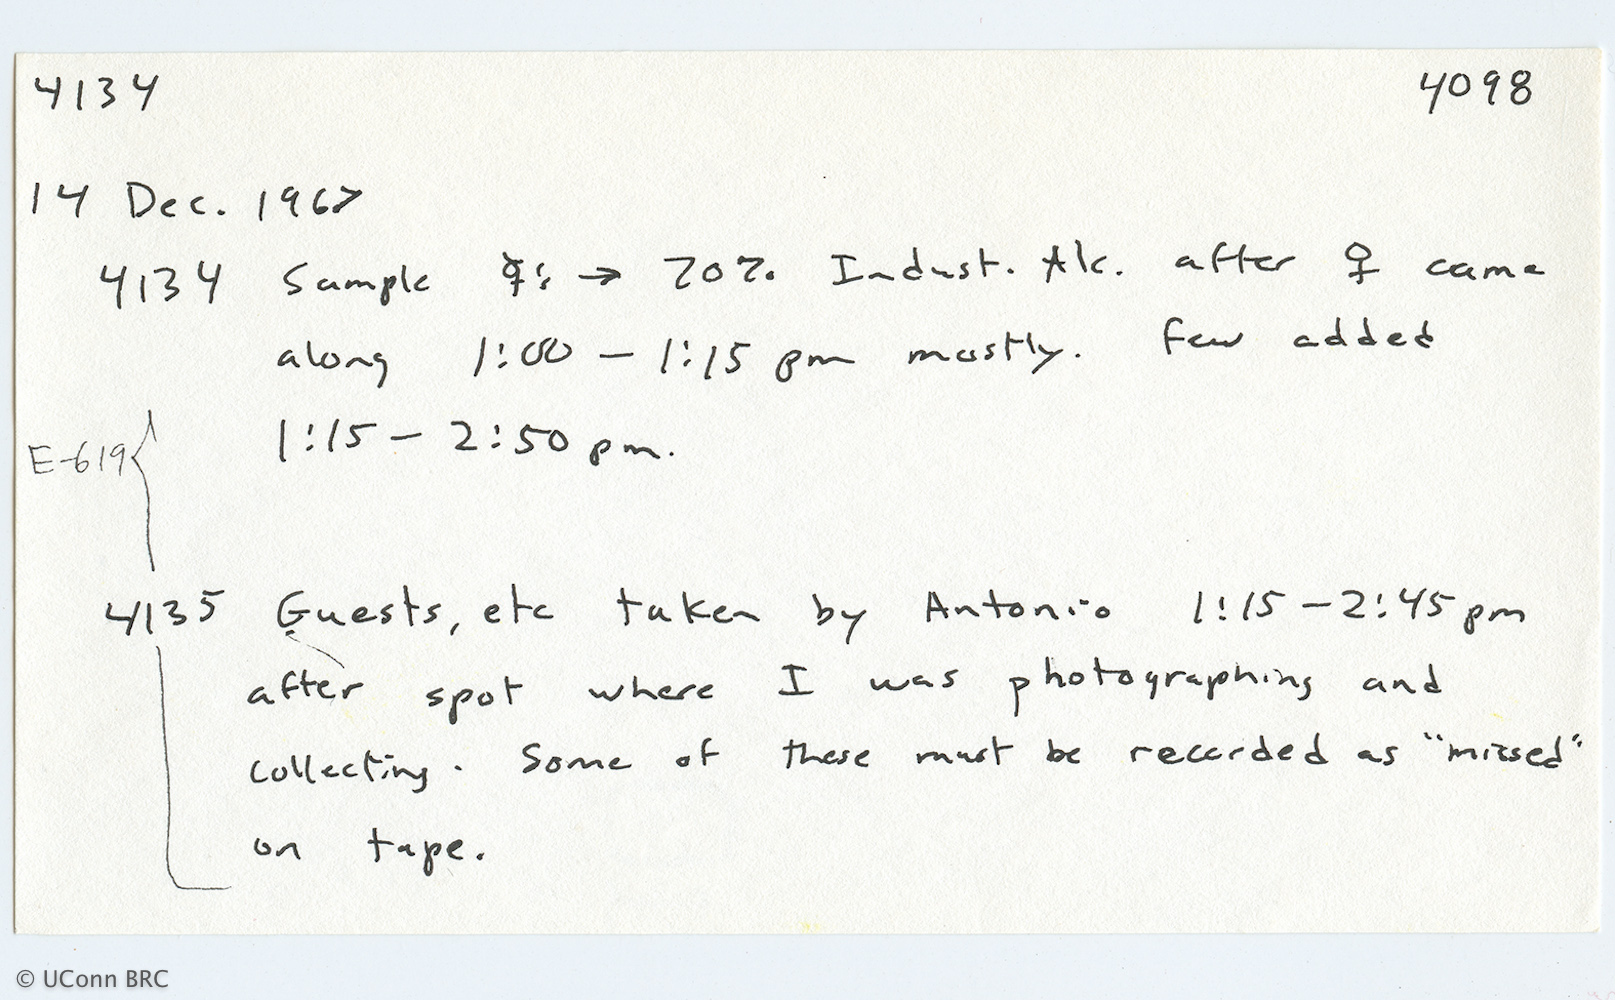 4134 4098
14 Dec. 1967
4134 Sample ☿s → 70% Indust. Alc. after ♀ came
along 1:00 – 1:15 pm mostly. Few added
1:15 – 2:50 pm.
E-619
4135 Guests, etc taken by Antonio 1:15 – 2:45 pm
after spot where I was photographing and
collecting. Some of these must be recorded as "missed"
on tape.
© UConn BRC